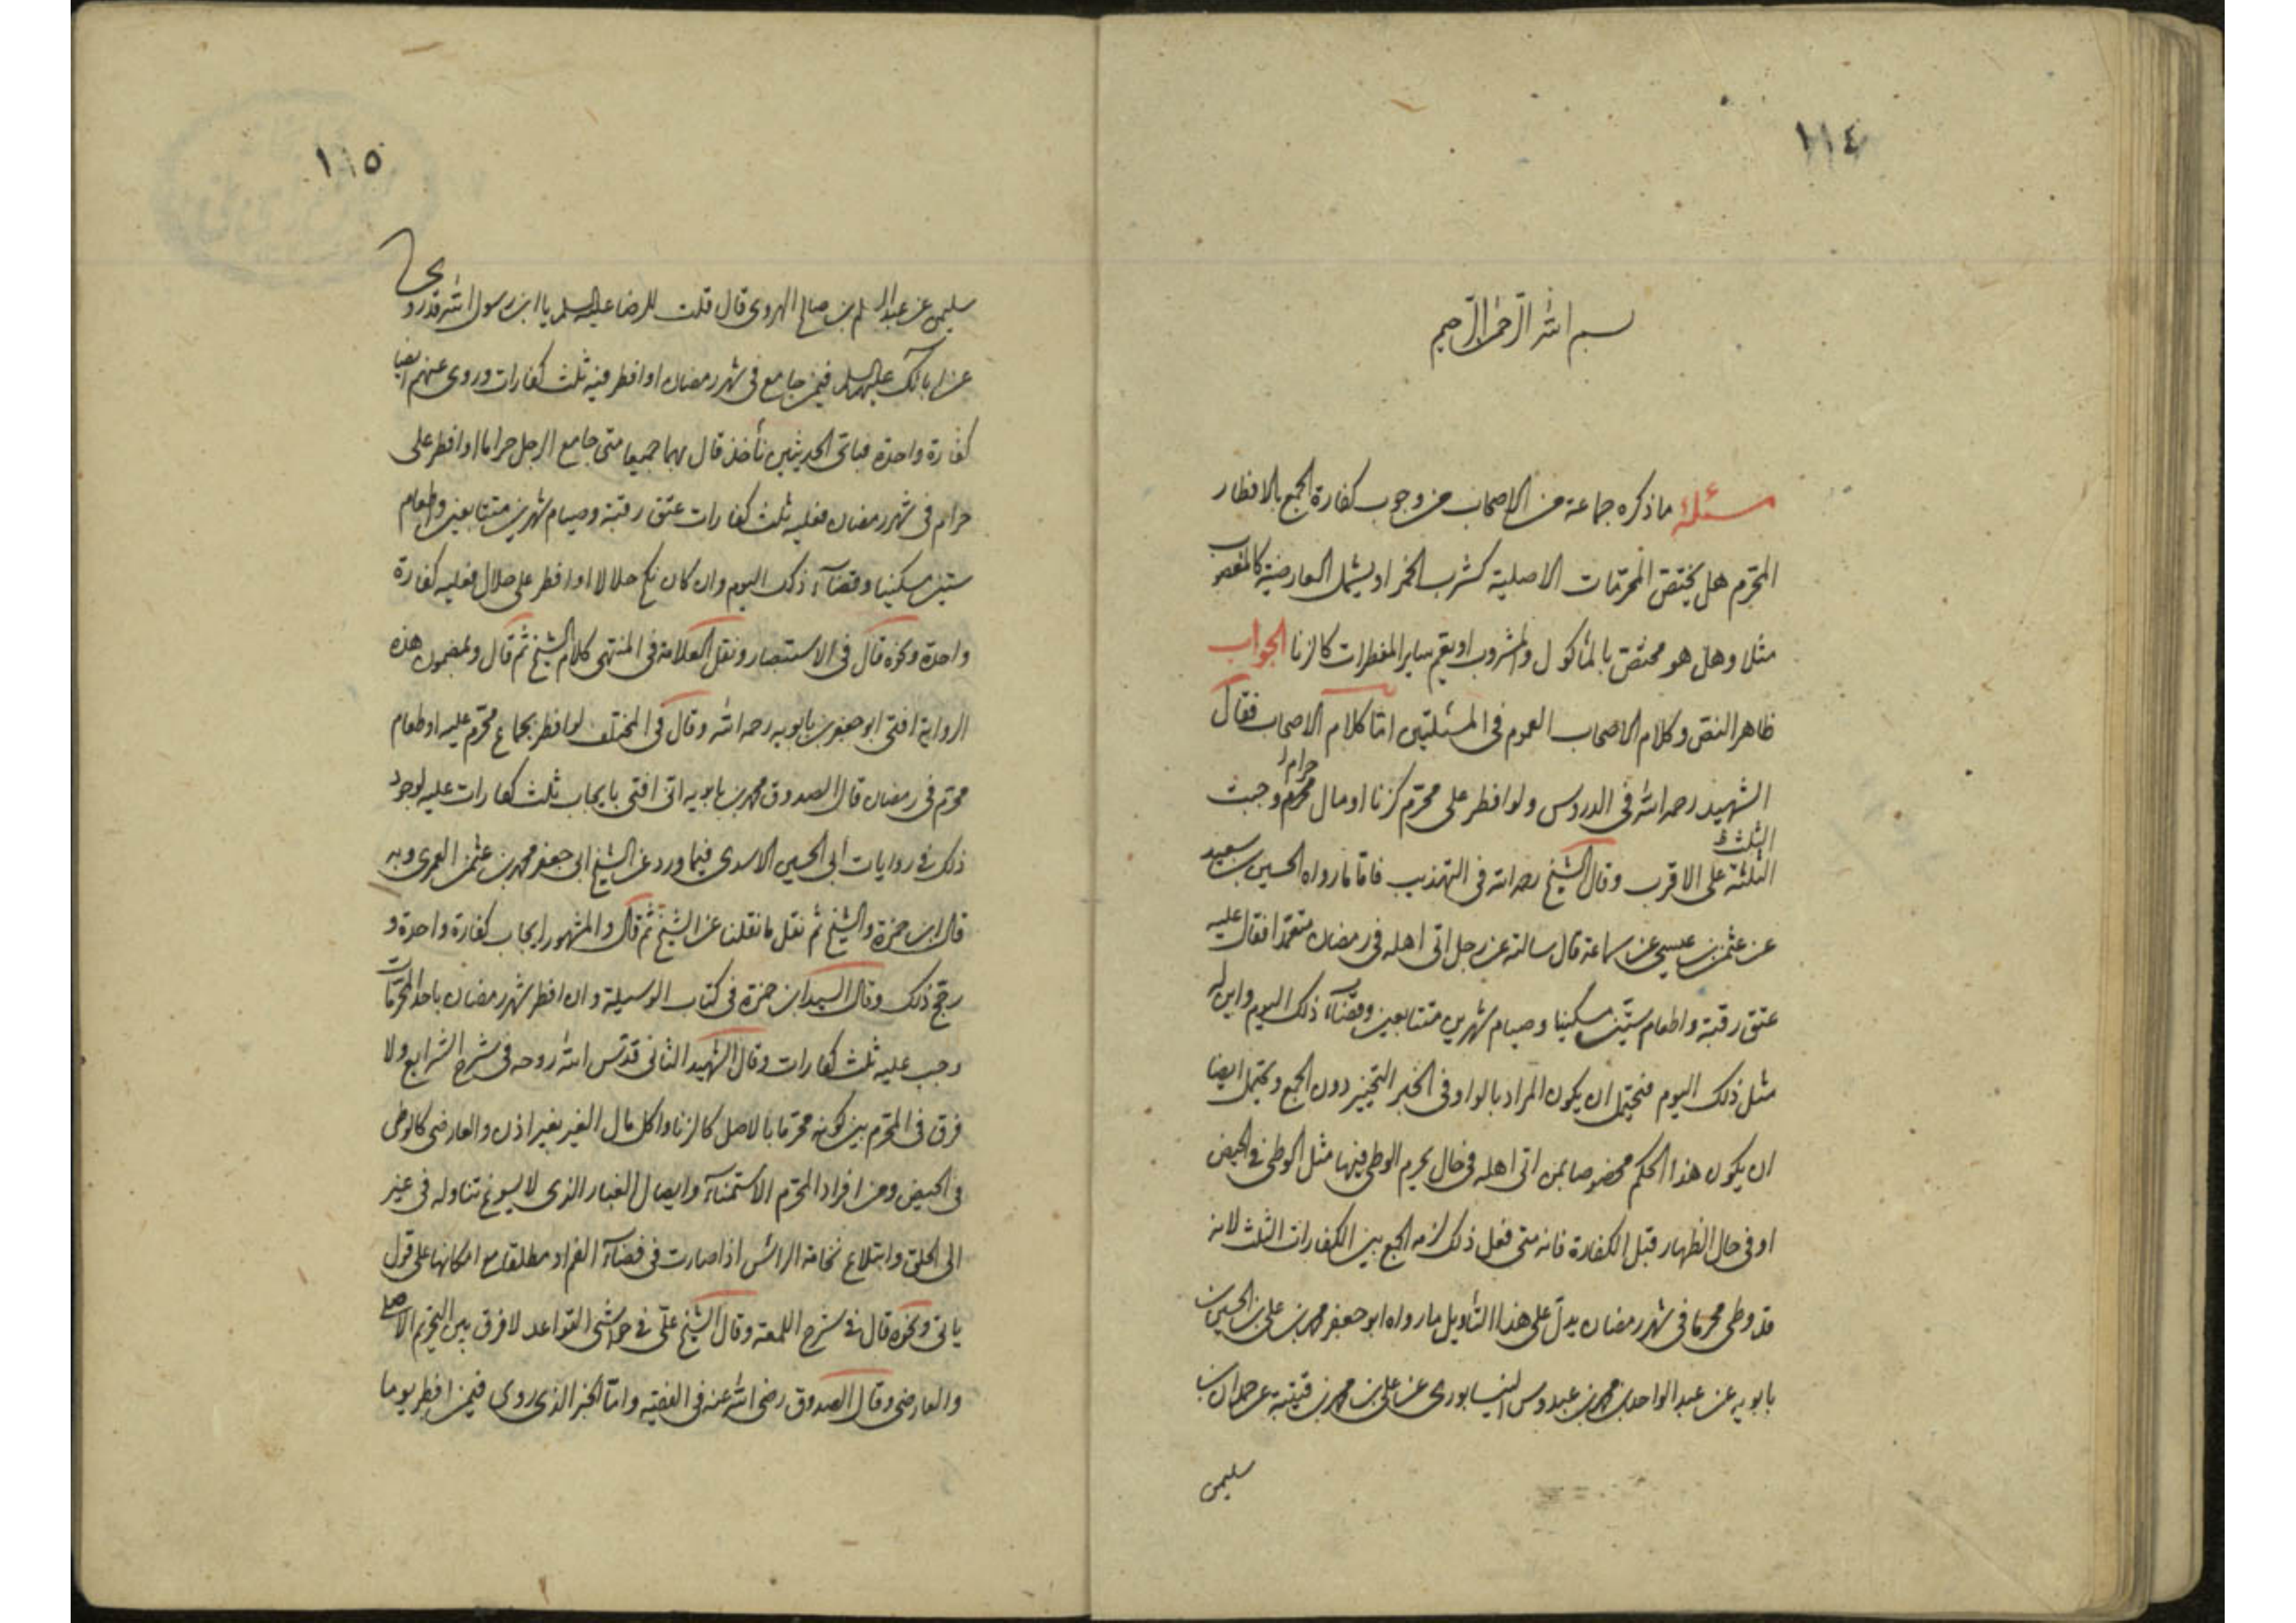 ١١٤
بسم الله الرحمن الرحيم
مسئلة ما ذكره جماعة من الاصحاب من وجوب كفارة الجمع بالافطار
المحرم هل يختص المحرمات الاصلية كشرب الخمر او يشمل العارضية كالمغصوب
مثلا وهل هو مختص بالمأكول والمشروب او يعم ساير المفطرات كالزنا الجواب
ظاهر النص وكلام الاصحاب العموم في المسئلتين اما كلام الاصحاب فقال
الشهيد رحمه الله في الدروس ولو افطر على محرم كزنا او مال محرم حراما وجبت
الثلث
الثلثة على الاقرب وقال الشيخ رحمه الله في التهذيب فاما ما رواه الحسين بن سعيد
عن عثمن بن عيسى عن سماعة قال سالته عن رجل اتى اهله في رمضان متعمدا فقال عليه
عتق رقبة واطعام ستين مسكينا وصيام شهرين متتابعين وقضآء ذلك اليوم واين له
مثل ذلك اليوم فيحتمل ان يكون المراد بالواو في الخبر التخيير دون الجمع ويحتمل ايضا
ان يكون هذا الحكم مخصوصا بمن اتى اهله في حال يحرم الوطي فيها مثل الوطي في الحيض
او في حال الظهار قبل الكفارة فانه متى فعل ذلك لزمه الجمع بين الكفارات الثلث لانه
قد وطى محرما في شهر رمضان يدل على هذا التأويل ما رواه ابو جعفر محمد بن علي بن الحسين بن
بابويه عن عبد الواحد بن محمد بن عبدوس النيسابوري عن علي بن محمد بن قتيبة عن حمدان بن
سليمن
١١٥
سليمن عن عبد السلم بن صالح الهروي قال قلت للرضا عليه السلم يا ابن رسول الله قد روى
عن ابائك عليهم السلم فيمن جامع في شهر رمضان او افطر فيه ثلث كفارات وروي عنهم ايضا
كفارة واحدة فباي الحديثين نأخذ قال بهما جميعا متى جامع الرجل حراما او افطر على
حرام في شهر رمضان فعليه ثلث كفارات عتق رقبة وصيام شهرين متتابعين واطعام
ستين مسكينا وقضآء ذلك اليوم وان كان نكح حلالا او افطر على حلال فعليه كفارة
واحدة ونحوه قال في الاستبصار ونقل العلامة في المنتهى كلام الشيخ ثم قال وبمضمون هذه
الرواية افتى ابو جعفر بن بابويه رحمه الله وقال في المختلف لو افطر بجماع محرم عليه او طعام
محرم في رمضان قال الصدوق محمد بن بابويه اني افتي بايجاب ثلث كفارات عليه لوجود
ذلك في روايات أبي الحسين الاسدي فيما ورد عن الشيخ ابي جعفر محمد بن عثمن العمري وبه
قال ابن حمزة والشيخ ثم نقل ما نقلنا عن الشيخ ثم قال والمشهور ايجاب كفارة واحدة و
رجح ذلك وقال السيد ابن حمزة في كتاب الوسيلة وان افطر شهر رمضان باحد المحرمات
وجب عليه ثلث كفارات وقال الشهيد الثاني قدس الله روحه في شرح الشرايع ولا
فرق في المحرم بين كونه محرما بالاصل كالزنا واكل مال الغير بغير اذن والعارضي كالوطي
في الحيض ومن افراد المحرم الاستمنآء وايصال الغبار الذي لا يسوغ تناوله في غير
الى الحلق وابتلاع نخامة الرائس اذا صارت في فضآء الفم او مطلقا مع امكانها على قول
ياتي ونحوه قال في شرح اللمعة وقال الشيخ علي في حواشي القواعد لا فرق بين التحريم الاصلي
والعارضي وقال الصدوق رضي الله عنه في الفقيه واما الخبر الذي روي فيمن افطر يوما